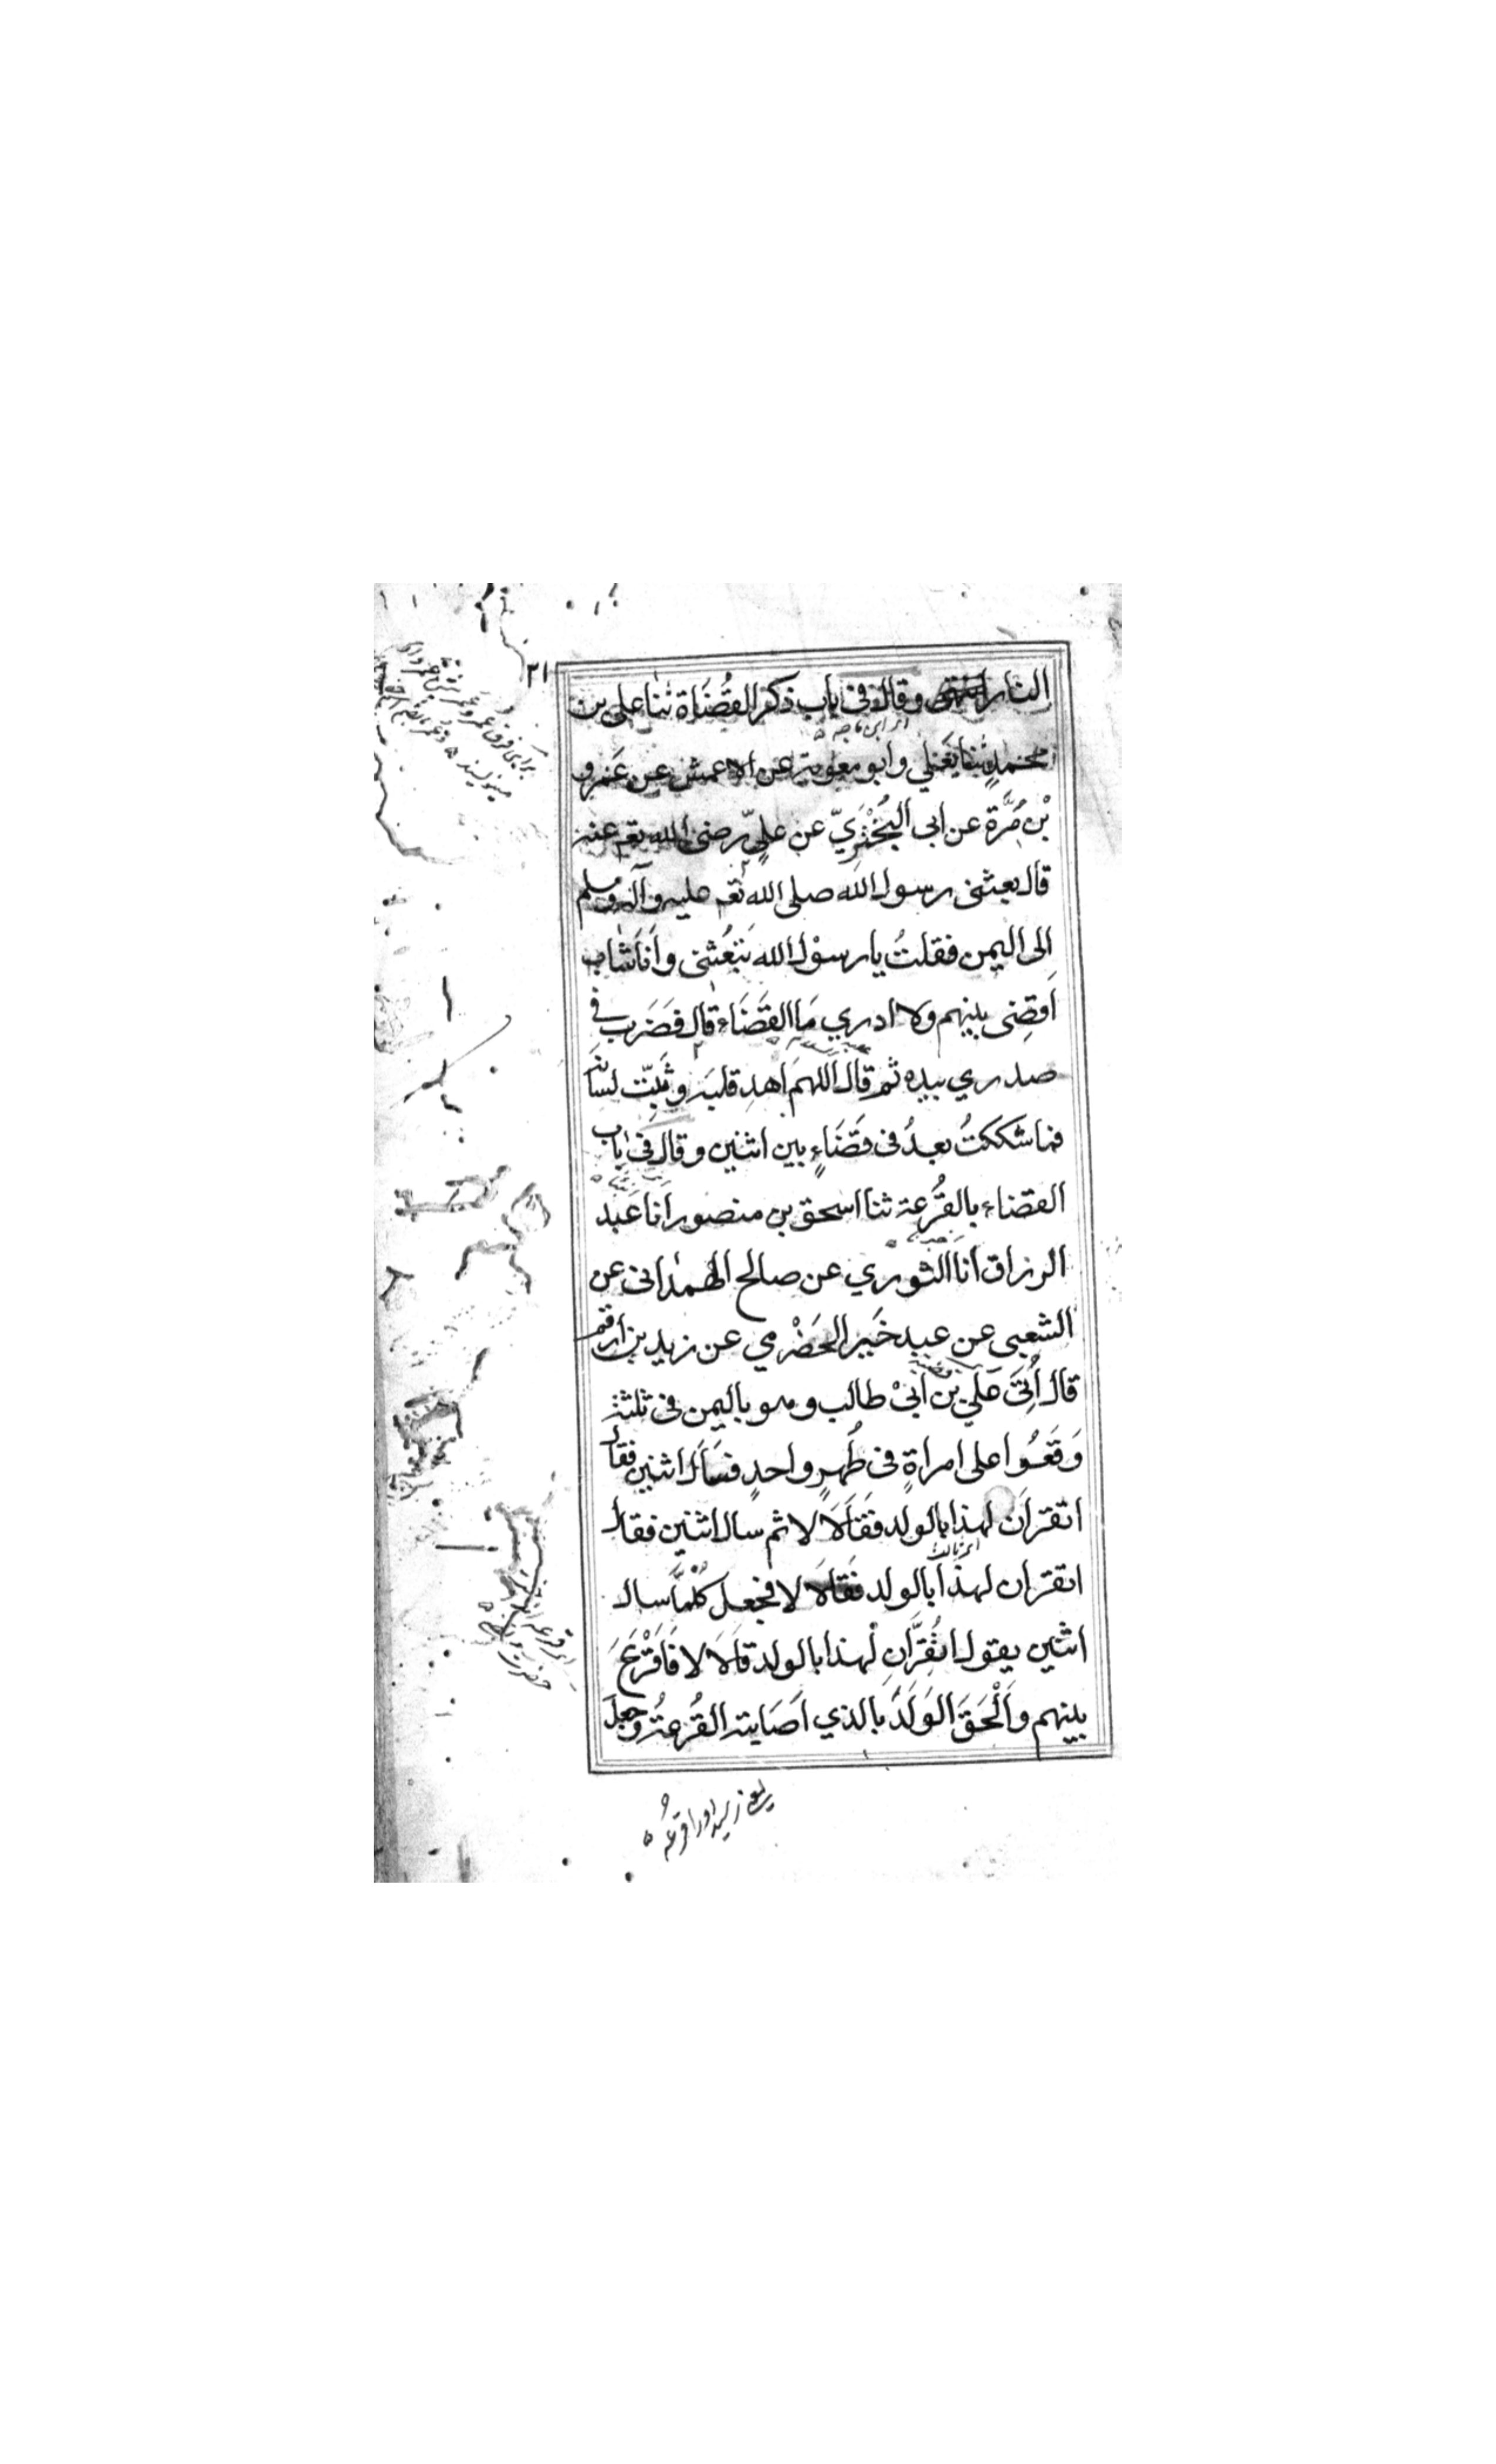 ٢١
النار انتهى وقال في باب ذكر القُضَاة ثنا على بن
محمدٍ ثنا يَعْلي وابو معوية عن الاعمش عن عَمرو
بْن مُرَّة عن ابى البَخْتَرِيّ عن عليّ رضى الله تعہ عنه
قال بعثنى رسول الله صلى الله تعہ عليه وآله وسلم
الى اليمن فقلتُ يا رسوْل الله تَبْعَثنى وانَا شاب
اَقضِى بينهم ولا ادري مَا القَضَاء قال فضَرَب فى
صدري بيده ثم قال اللهم اهدِ قلبه وثَبِّت لسانَه
فما شككتُ بعدُ فى قَضَاءٍ بين اثنين وقال فى باب
القضاء بالقُرعة ثنا اسحق بن منصور انا عَبد
الرزاق انا الثوري عن صالح الهمدانى عن
الشعبى عن عبد خَير الحَضْرمي عن زيد بن ارقم
قال اُتِىَ عَلي بن ابىْ طالب وهو باليمن فى ثلثة
وَقَعُوا على امراةٍ فى طُهرٍ واحدٍ فسَاَل اثنين فقال
اتقران لهذا بالولد فقَالاَ لا ثم سال اثنين فقال
اتقران لهذا بالولد فقَالاَ لا فجعل كُلمَّا سال
اثنين يقول اتُقِرَّانِ لهذا بالولد قالاَ لا فَاَقْرَعَ
بينهم واَلْحَقَ الوَلَدَ بالذي اَصَابته القُرعةُ وجعلَ